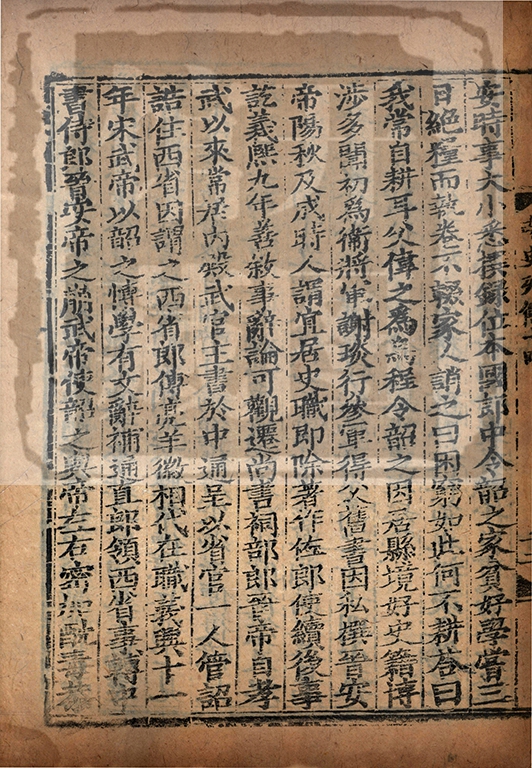 安時事大小悉撰錄位本國郎中令韶之家貧好學嘗三
日絕糧而執卷不輟家人誚之曰困窮如此何不耕荅曰
我常自耕耳父偉之為烏程令韶之因居縣境好史籍博
涉多聞初為衛將軍謝琰行叅軍得父舊書因私撰晉安
帝陽秋及成時人謂宜居史職即除著作佐郎使續後事
訖義熙九年善敘事辭論可觀遷尚書祠部郎晉帝自孝
武以來常居內殿武官主書於中通呈以省官一人管詔
誥住西省因謂之西省郎傅亮羊徽相代在職義熙十一
年宋武帝以韶之博學有文辭補通直郎領西省事轉中
書侍郎晉安帝之崩武帝使韶之與帝左右密加酖毒恭